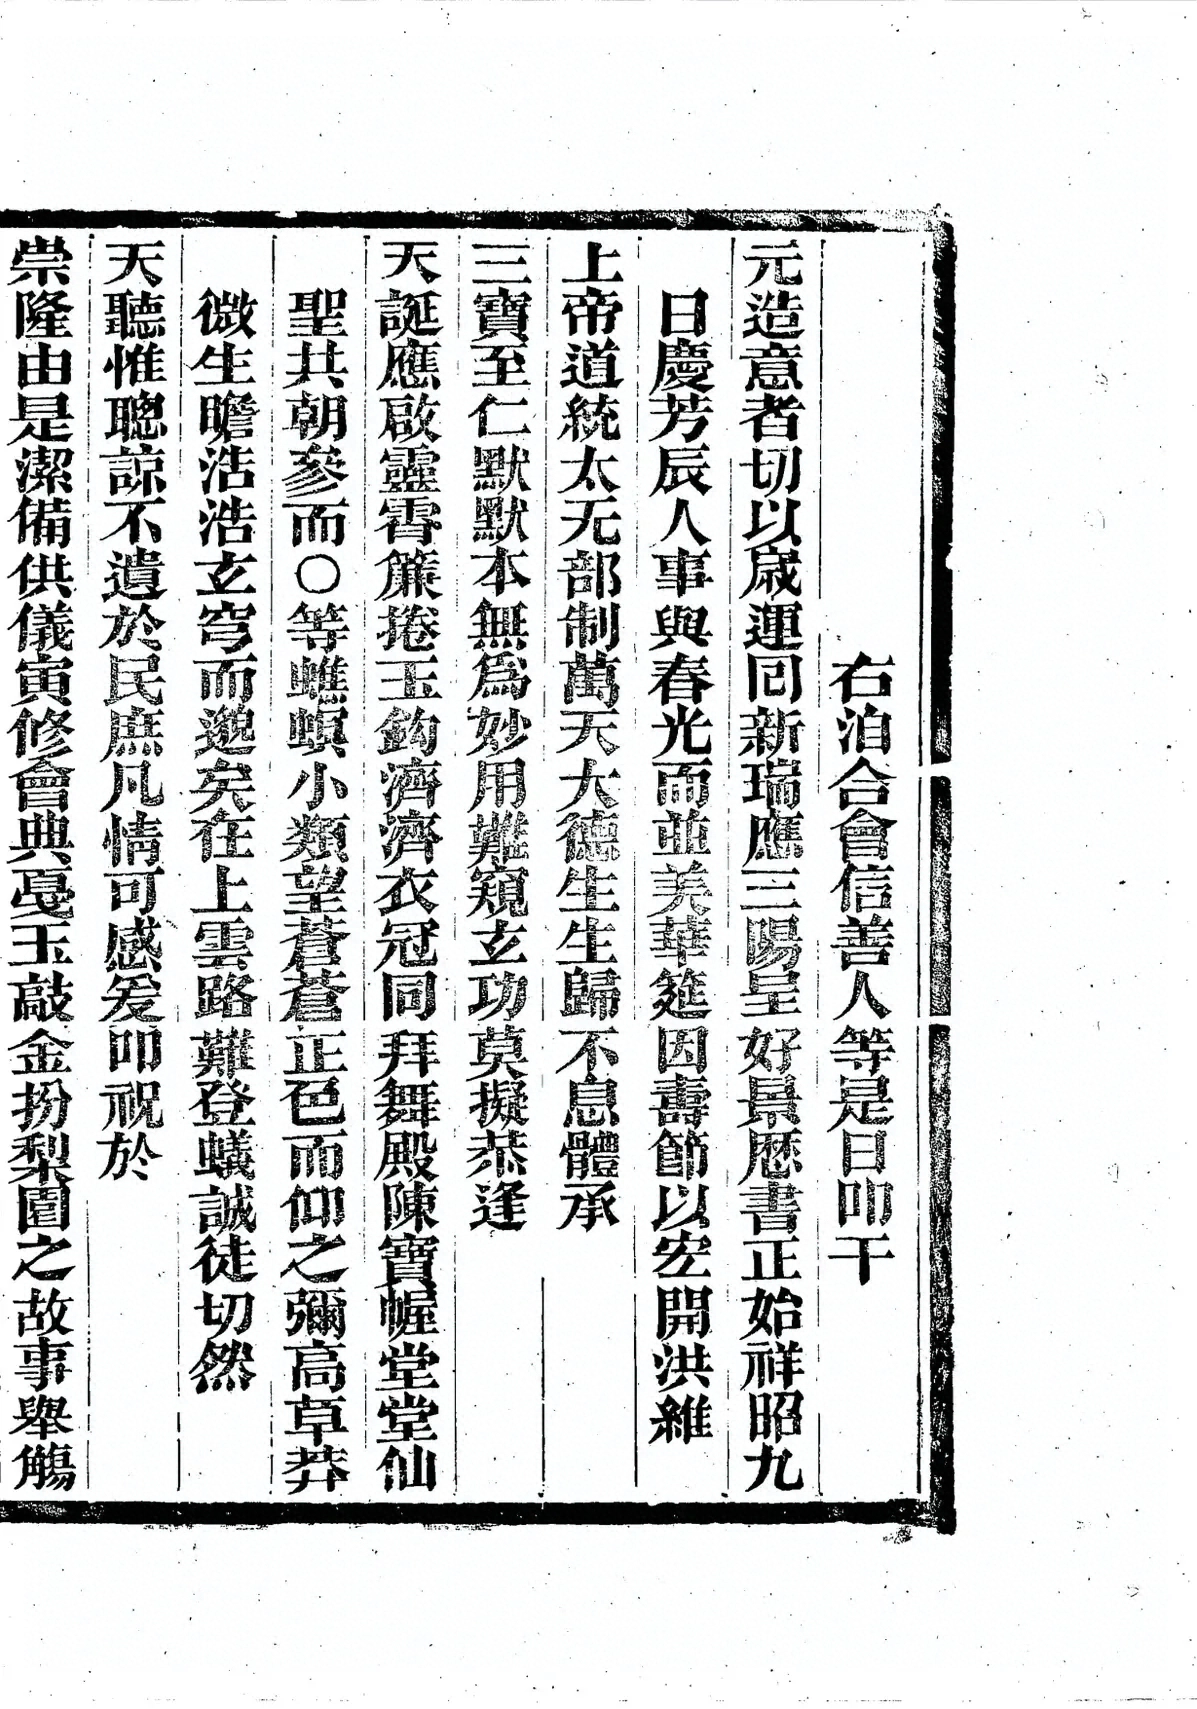 右泊合會信善人等是日叩干
元造意者切以歲運回新瑞應三陽呈好景歷書正始祥昭九
日慶芳辰人事與春光而並美華筵因壽節以宏開洪維
上帝道統太无部制萬天大德生生歸不息體承
三寶至仁默默本無爲妙用難窺玄功莫擬恭逢
天誕應啟靈霄簾捲玉鈎濟濟衣冠同拜舞殿陳寶幄堂堂仙
聖共朝參而○等蟭螟小類望蒼蒼正色而仰之彌高草莽
微生瞻浩浩玄穹而邈矣在上雲路難登蟻誠徒切然
天聽惟聰諒不遺於民庶凡情可感爰叩祝於
崇隆由是潔備供儀寅修會典戛玉敲金扮梨園之故事舉觴